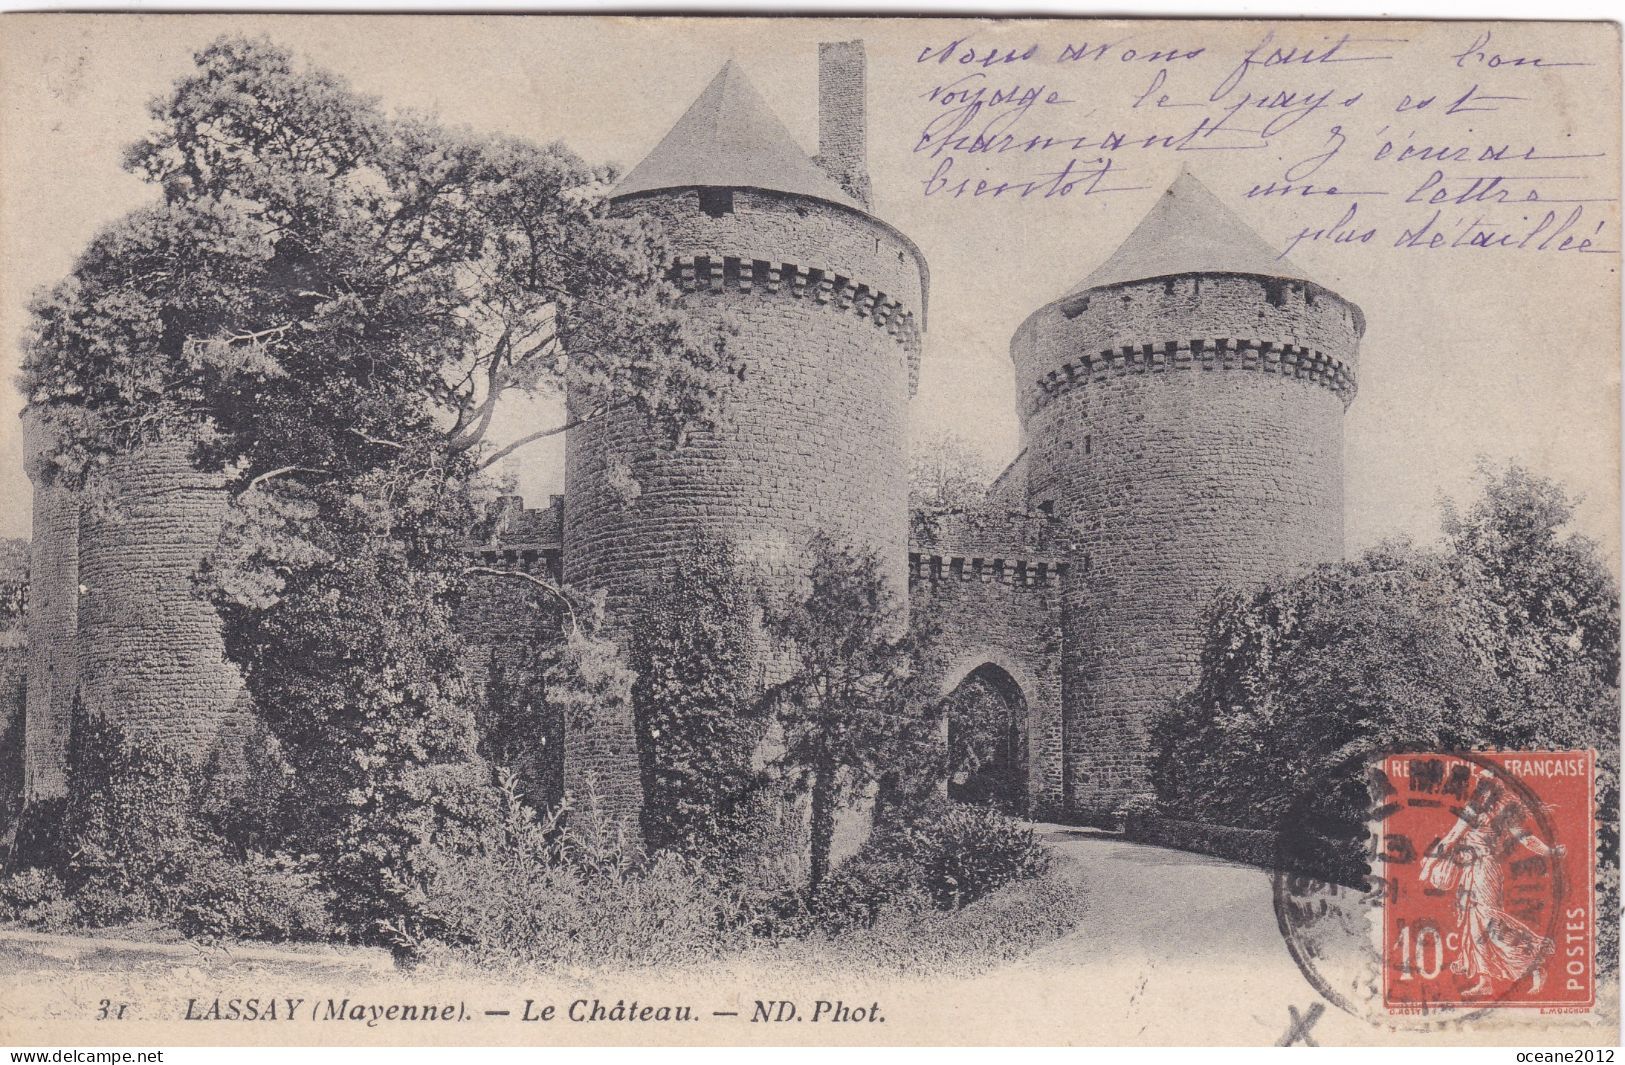 Nous avons fait bon
voyage, le pays est
charmant J'écrirai
bientôt une lettre
plus détaillée
REPUBLIQUE FRANÇAISE
10 c
POSTES
O. ROTY
E. MOUCHON
LA MADELEINE
13 40
21 - 8
10
31 LASSAY (Mayenne). — Le Château. — ND. Phot.
X
delcampe.net
oceane2012